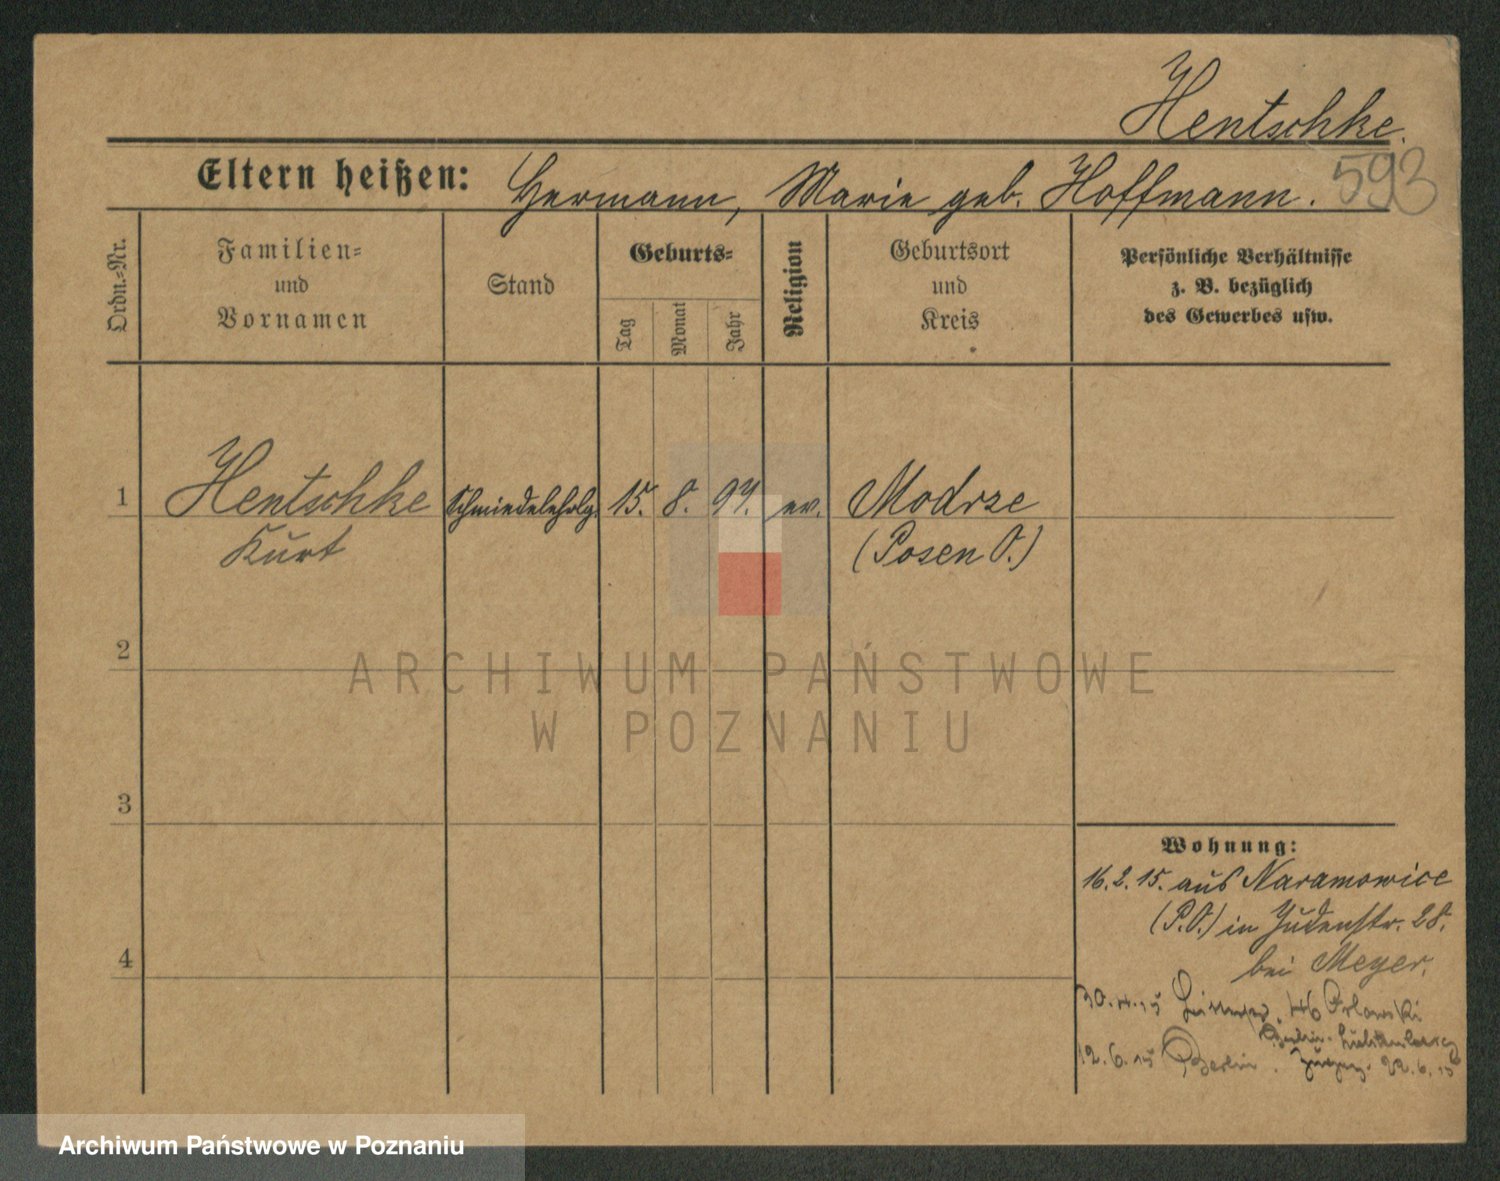 Hentschke.
593
Eltern heißen: Hermann, Marie geb. Hoffmann.
Ordn.=Nr.
Familien=
und
Vornamen
Stand
Geburts=
Tag
Monat
Jahr
Religion
Geburtsort
und
Kreis
Persönliche Verhältnisse
z. B. bezüglich
des Gewerbes usw.
1 Hentschke Schmiedelehrlg. 15. 8. 97. ev. Modrze
Kurt (Posen O.)
2
ARCHIWUM PAŃSTWOWE
W POZNANIU
3
Wohnung:
16.2.15. aus Naramowice
(P.O.) in Judenstr. 28.
4
bei Meyer.
30.4.15 46 Orlowski
Berlin-
12.6.15 Berlin. 22.6.15
Archiwum Państwowe w Poznaniu